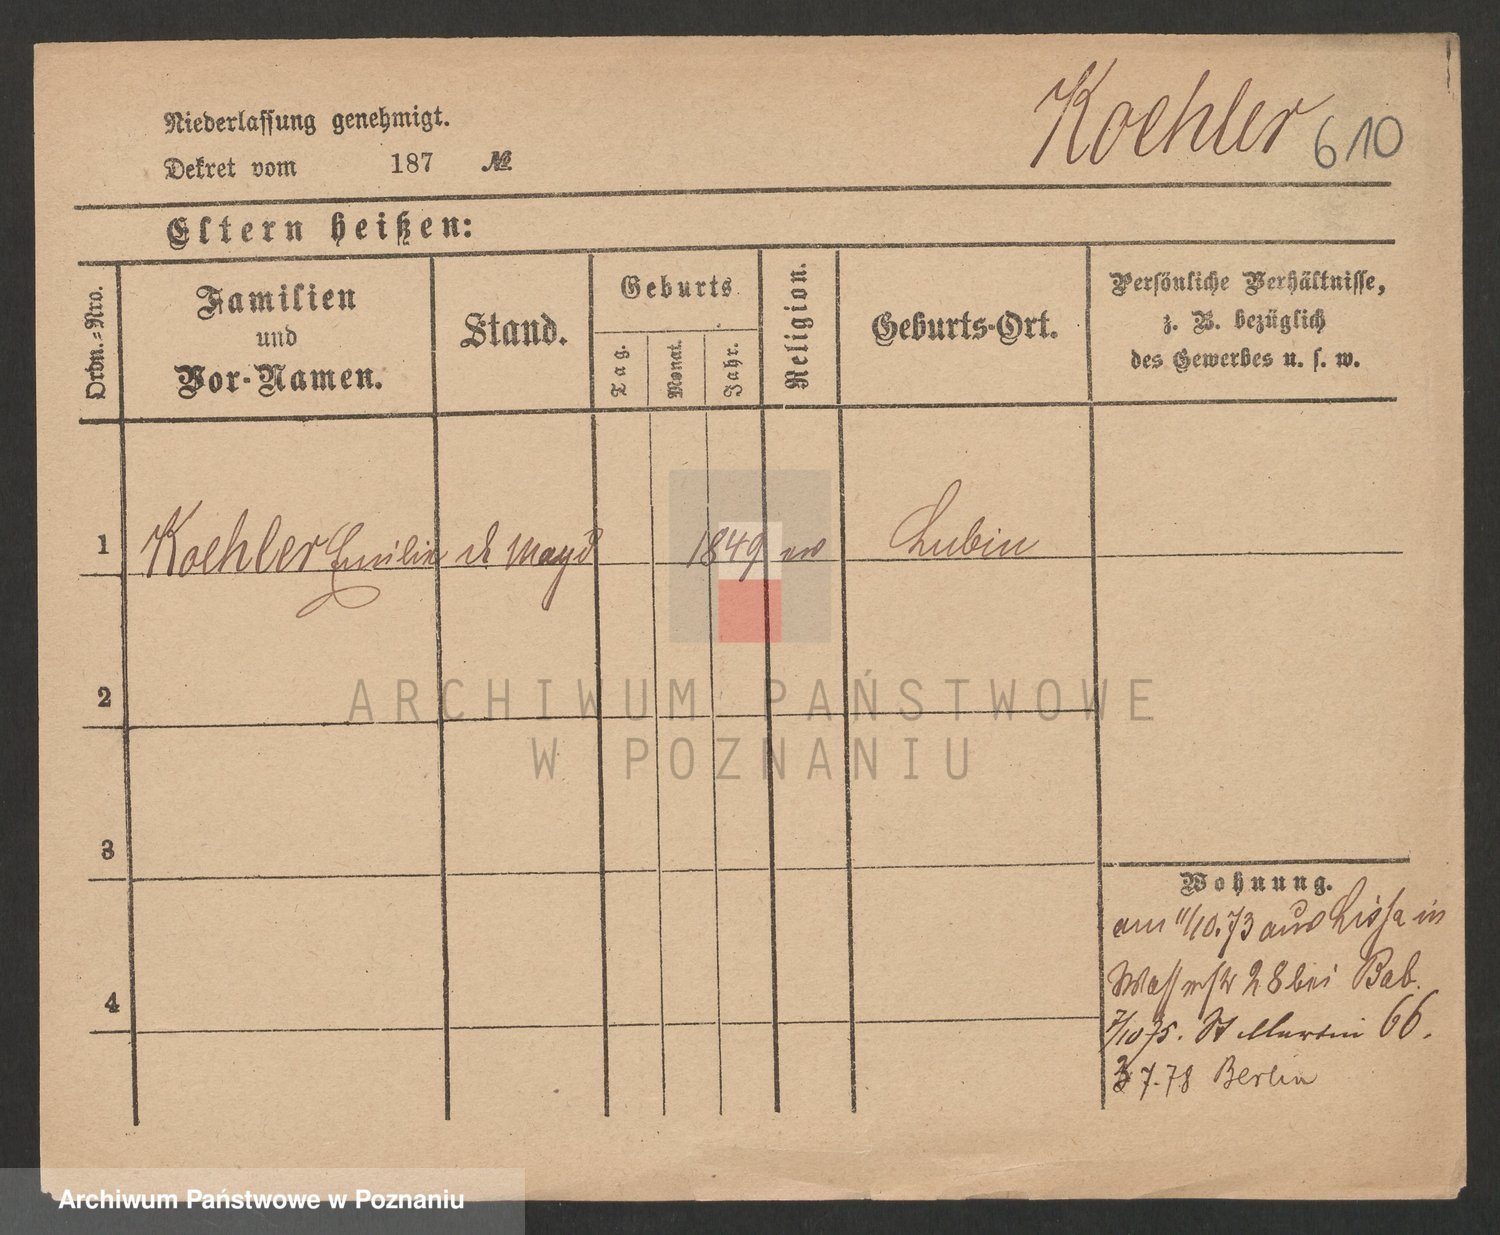 Koehler 610
Niederlassung genehmigt.
Dekret vom 187 №
Eltern heißen:
Ordn.-Nro.
Familien
und
Vor-Namen.
Stand.
Geburts
Tag.
Monat.
Jahr.
Religion.
Geburts-Ort.
Persönliche Verhältnisse,
z. B. bezüglich
des Gewerbes u. s. w.
1 Koehler Emilie d Magd 1849 ev Lubin
2
3
4
Wohnung.
am 11/10.73 aus Lissa in
Wasserstr 28 bei Bab.
7/10 75. St Martin 66.
3 7.78 Berlin
ARCHIWUM PAŃSTWOWE
W POZNANIU
Archiwum Państwowe w Poznaniu